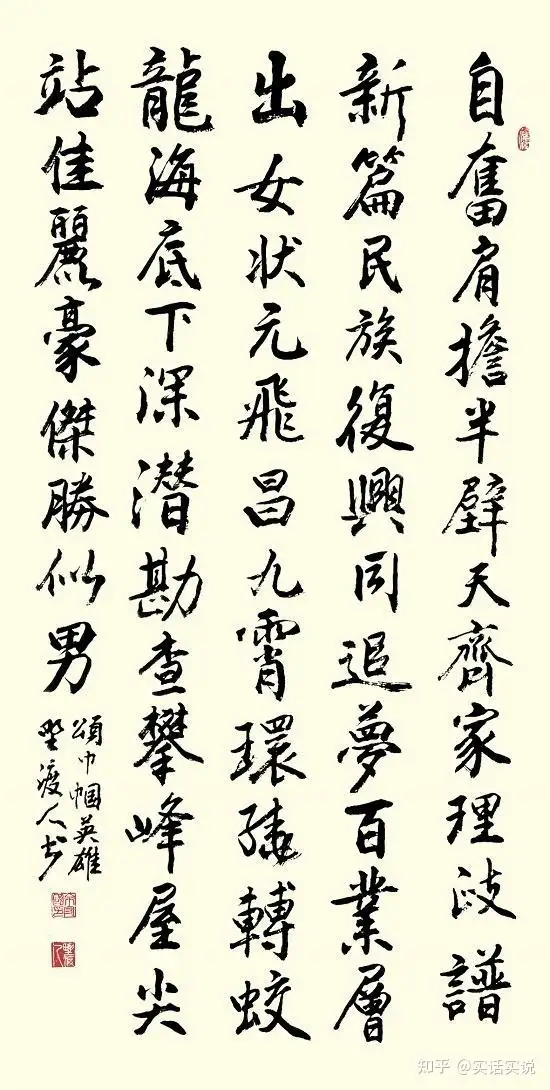 自奮肩擔半壁天齊家理政譜
新篇民族復興同追夢百業層
出女状元飛昌九霄環球轉蛟
龍海底下深潜勘查攀峰屋尖
站佳麗豪傑勝似男
頌巾帼英雄
野渡人书
知乎 @实话实说